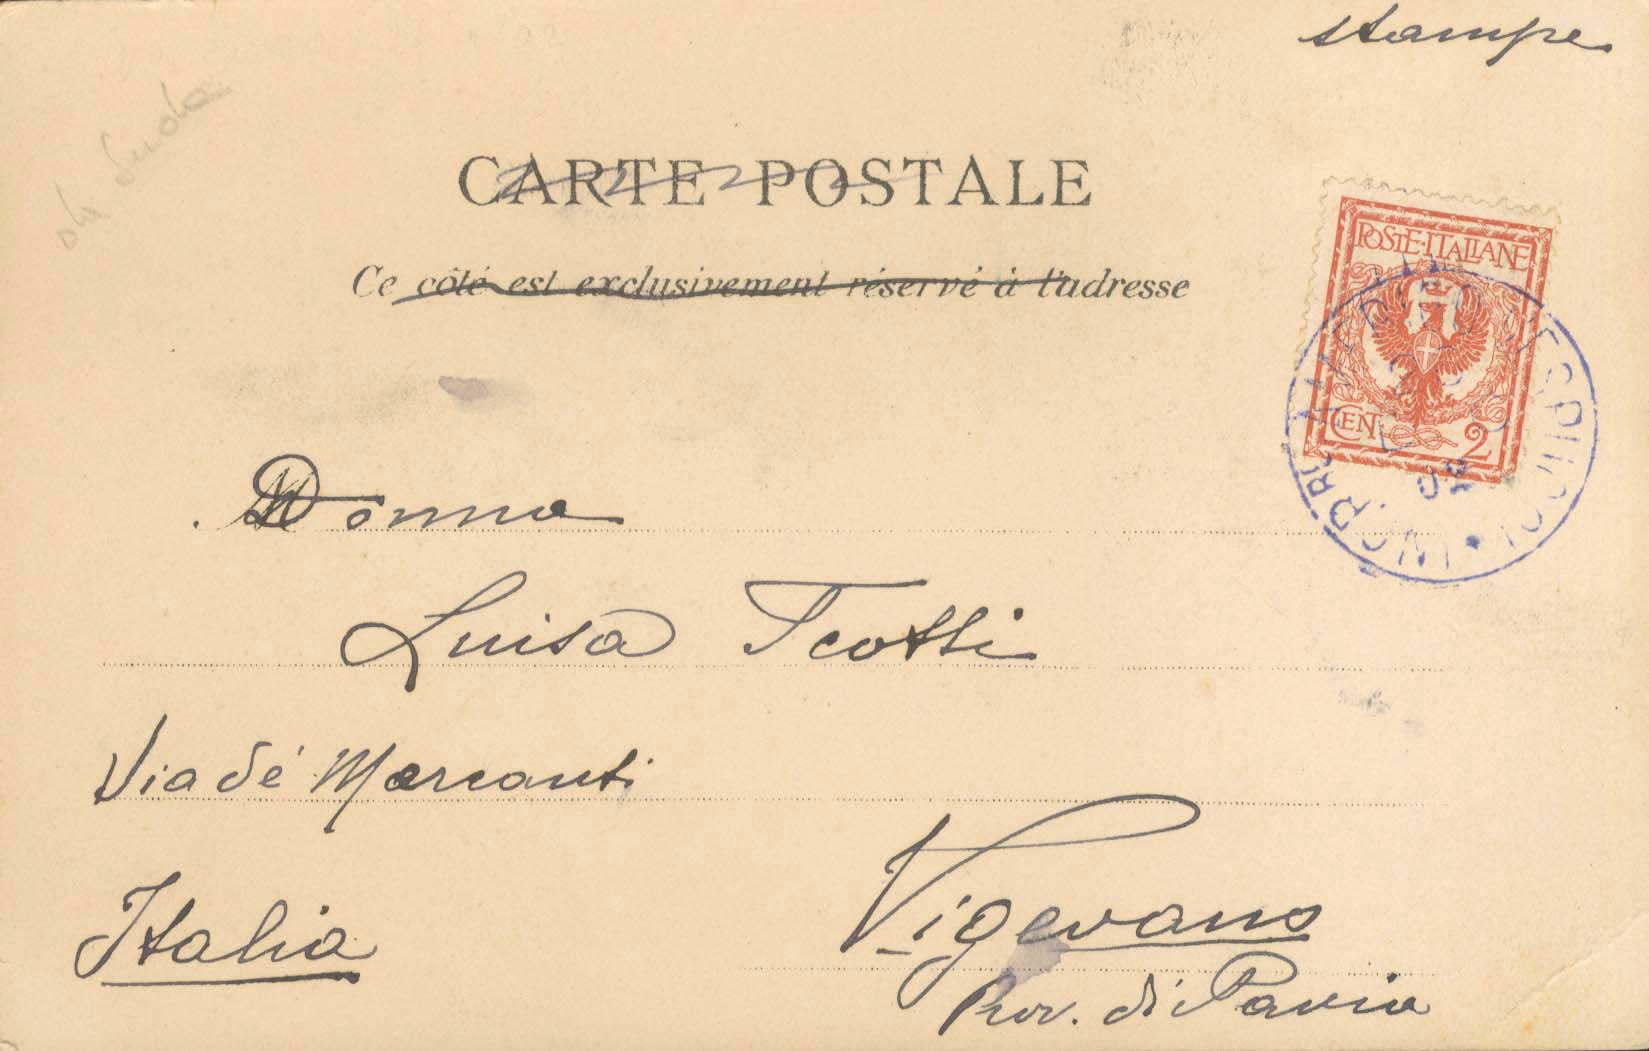 stampe
CARTE POSTALE
Ce côté est exclusivement réservé à l'adresse
POSTE·ITALIANE
CENT 2
Donna
Luisa Scotti
Via dé Mercanti
Italia
Vigevano
Prov. di Pavia